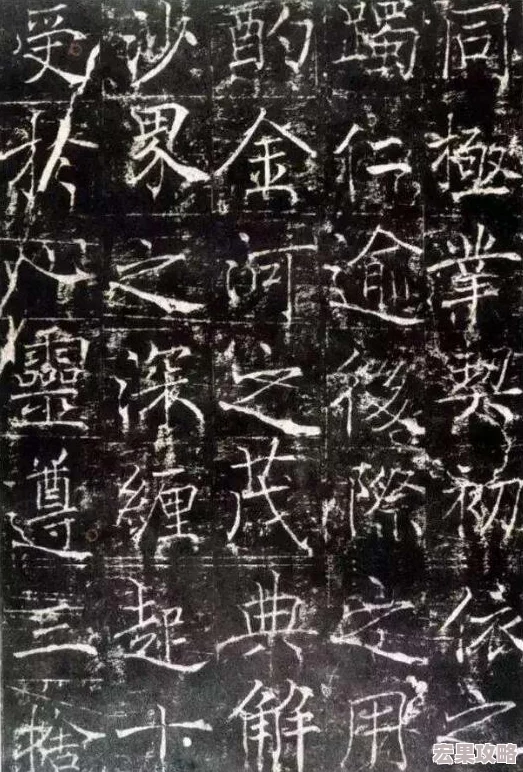 同極業契初依之
躅仁逾後際之用
酌金河之茂典解
沙界之深纏起十
受於心靈遵三捨
宏果攻略